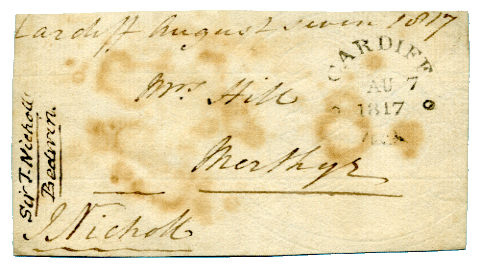 Cardiff August seven 1817
CARDIFF
AU 7
1817
Mrs. Hill
Merthyr
Sir J. Nicholl
Bedwin.
J Nicholl